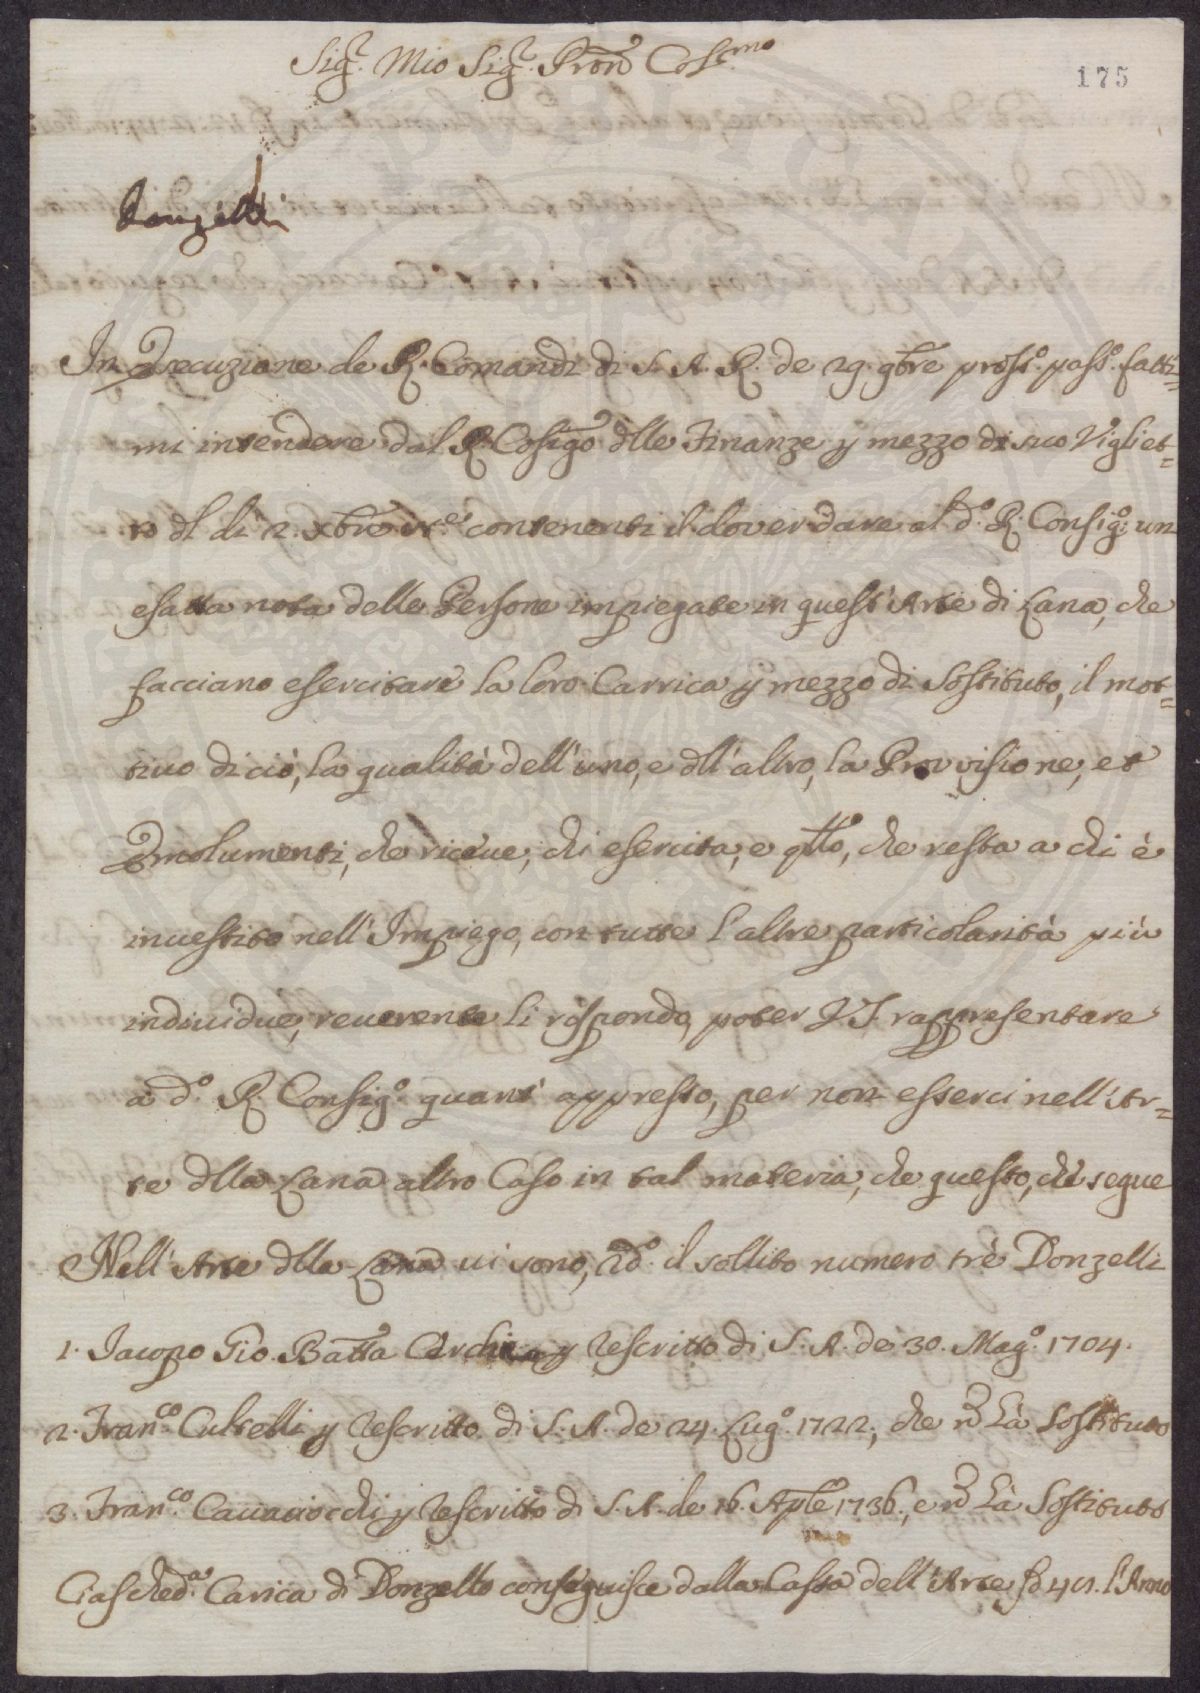 Sig.r Mio Sig.r Pron Col.mo
175
Donzelli
In Esecuzione de R. Comandi di S. A. R. de 29. 9bre pross.o pass.o fatti=
mi intendere dal R. Cosigo dlle Finanze p mezzo di suo Vigliet=
to dl dì 2. xbre contenenti il dover dare al d.o R. Consig.o un
esatta nota delle Persone impiegate in quest'Arte di Lana, che
facciano esercitare la loro Carrica p mezzo di Sostituto, il mot=
tivo di ciò, la qualità dell'uno, e dll'altro, la Provvisione, et
Emolumenti, che riceve, chi esercita, e qtto, che resta a chi è
investito nell'Impiego, con tutte l'altre particolarità più
individue, reverente li rispondo, poter V.S. rappresentare
a d.o R. Consig.o quant'appresso, per non esserci nell'Ar=
te dlla Lana altro Caso in tal materia, che questo, che segue
Nell'Arte dlla Lana vi sono, 2do il sollito numero trè Donzelli
1. Jacopo Gio. Batta p Rescritto di S. A. de 30. Mag.o 1704.
2. Fran.co Cultelli p Rescritto di S. A. de 24. Lug.o 1722, che Sostituto
3. Fran.co Cavaciocchi p Rescritto di S. A. de 16. Aple 1736, e Sostituto
Ciasched.a Carica di Donzello conseguisce dalla Cassa dell'Arte l'Anno